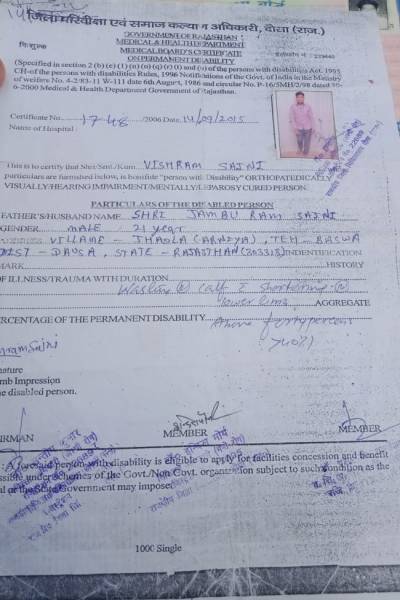 जिला परिवीक्षा एवं समाज कल्याण अधिकारी, दौसा (राज.)
निःशुल्क
GOVERNMENT OF RAJASTHAN
MEDICAL & HEALTH DEPARTMENT
MEDICAL BOARD'S CERTIFICATE
ON PERMANENT DISABILITY
(Specified in section 2 (b) (e) (l) (n) (o) (q) (r) (t) and (u) of the persons with disabilities Act, 1995
CH-of the persons with disabilities Rules, 1996 Notifications of the Govt. of India in the Ministry
of welfare No. 4-2/83-11 W-111 date 6th August, 1986 and circular No. P-16/5MH/2/98 dated
6-2000 Medical & Health Department Government of Rajasthan.
Certificate No. 1748 /2006 Date 14/09/2015
Name of Hospital
This is to certify that Shri/Smt./Kum. VISHRAM SAINI
particulars are furnished below, is bonafide "person with Disability" ORTHOPAEDICALLY
VISUALLY/HEARING IMPAIRMENT/MENTALLY/LEPROSY CURED PERSON.
PARTICULARS OF THE DISABLED PERSON
FATHER'S/HUSBAND NAME SHRI JAMBU RAM SAINI
GENDER MALE 21 year
ADDRESS VILLAGE - JHAOLA (ARNIYA), TEH - BASWA
DIST - DAUSA, STATE - RAJASTHAN (303313) INDENTIFICATION
MARK HISTORY
OF ILLNESS/TRAUMA WITH DURATION
Wasting calf shortening
lower limb AGGREGATE
PERCENTAGE OF THE PERMANENT DISABILITY Above forty percent
>40%
ramSaini
nature
mb Impression
he disabled person.
IRMAN MEMBER MEMBER
: Aforesaid person with disability is eligible to apply for facilities concession and benefit
ssible under schemes of the Govt./Non Govt. organization subject to such condition as the
al or the State Government may impose.
1000 Single